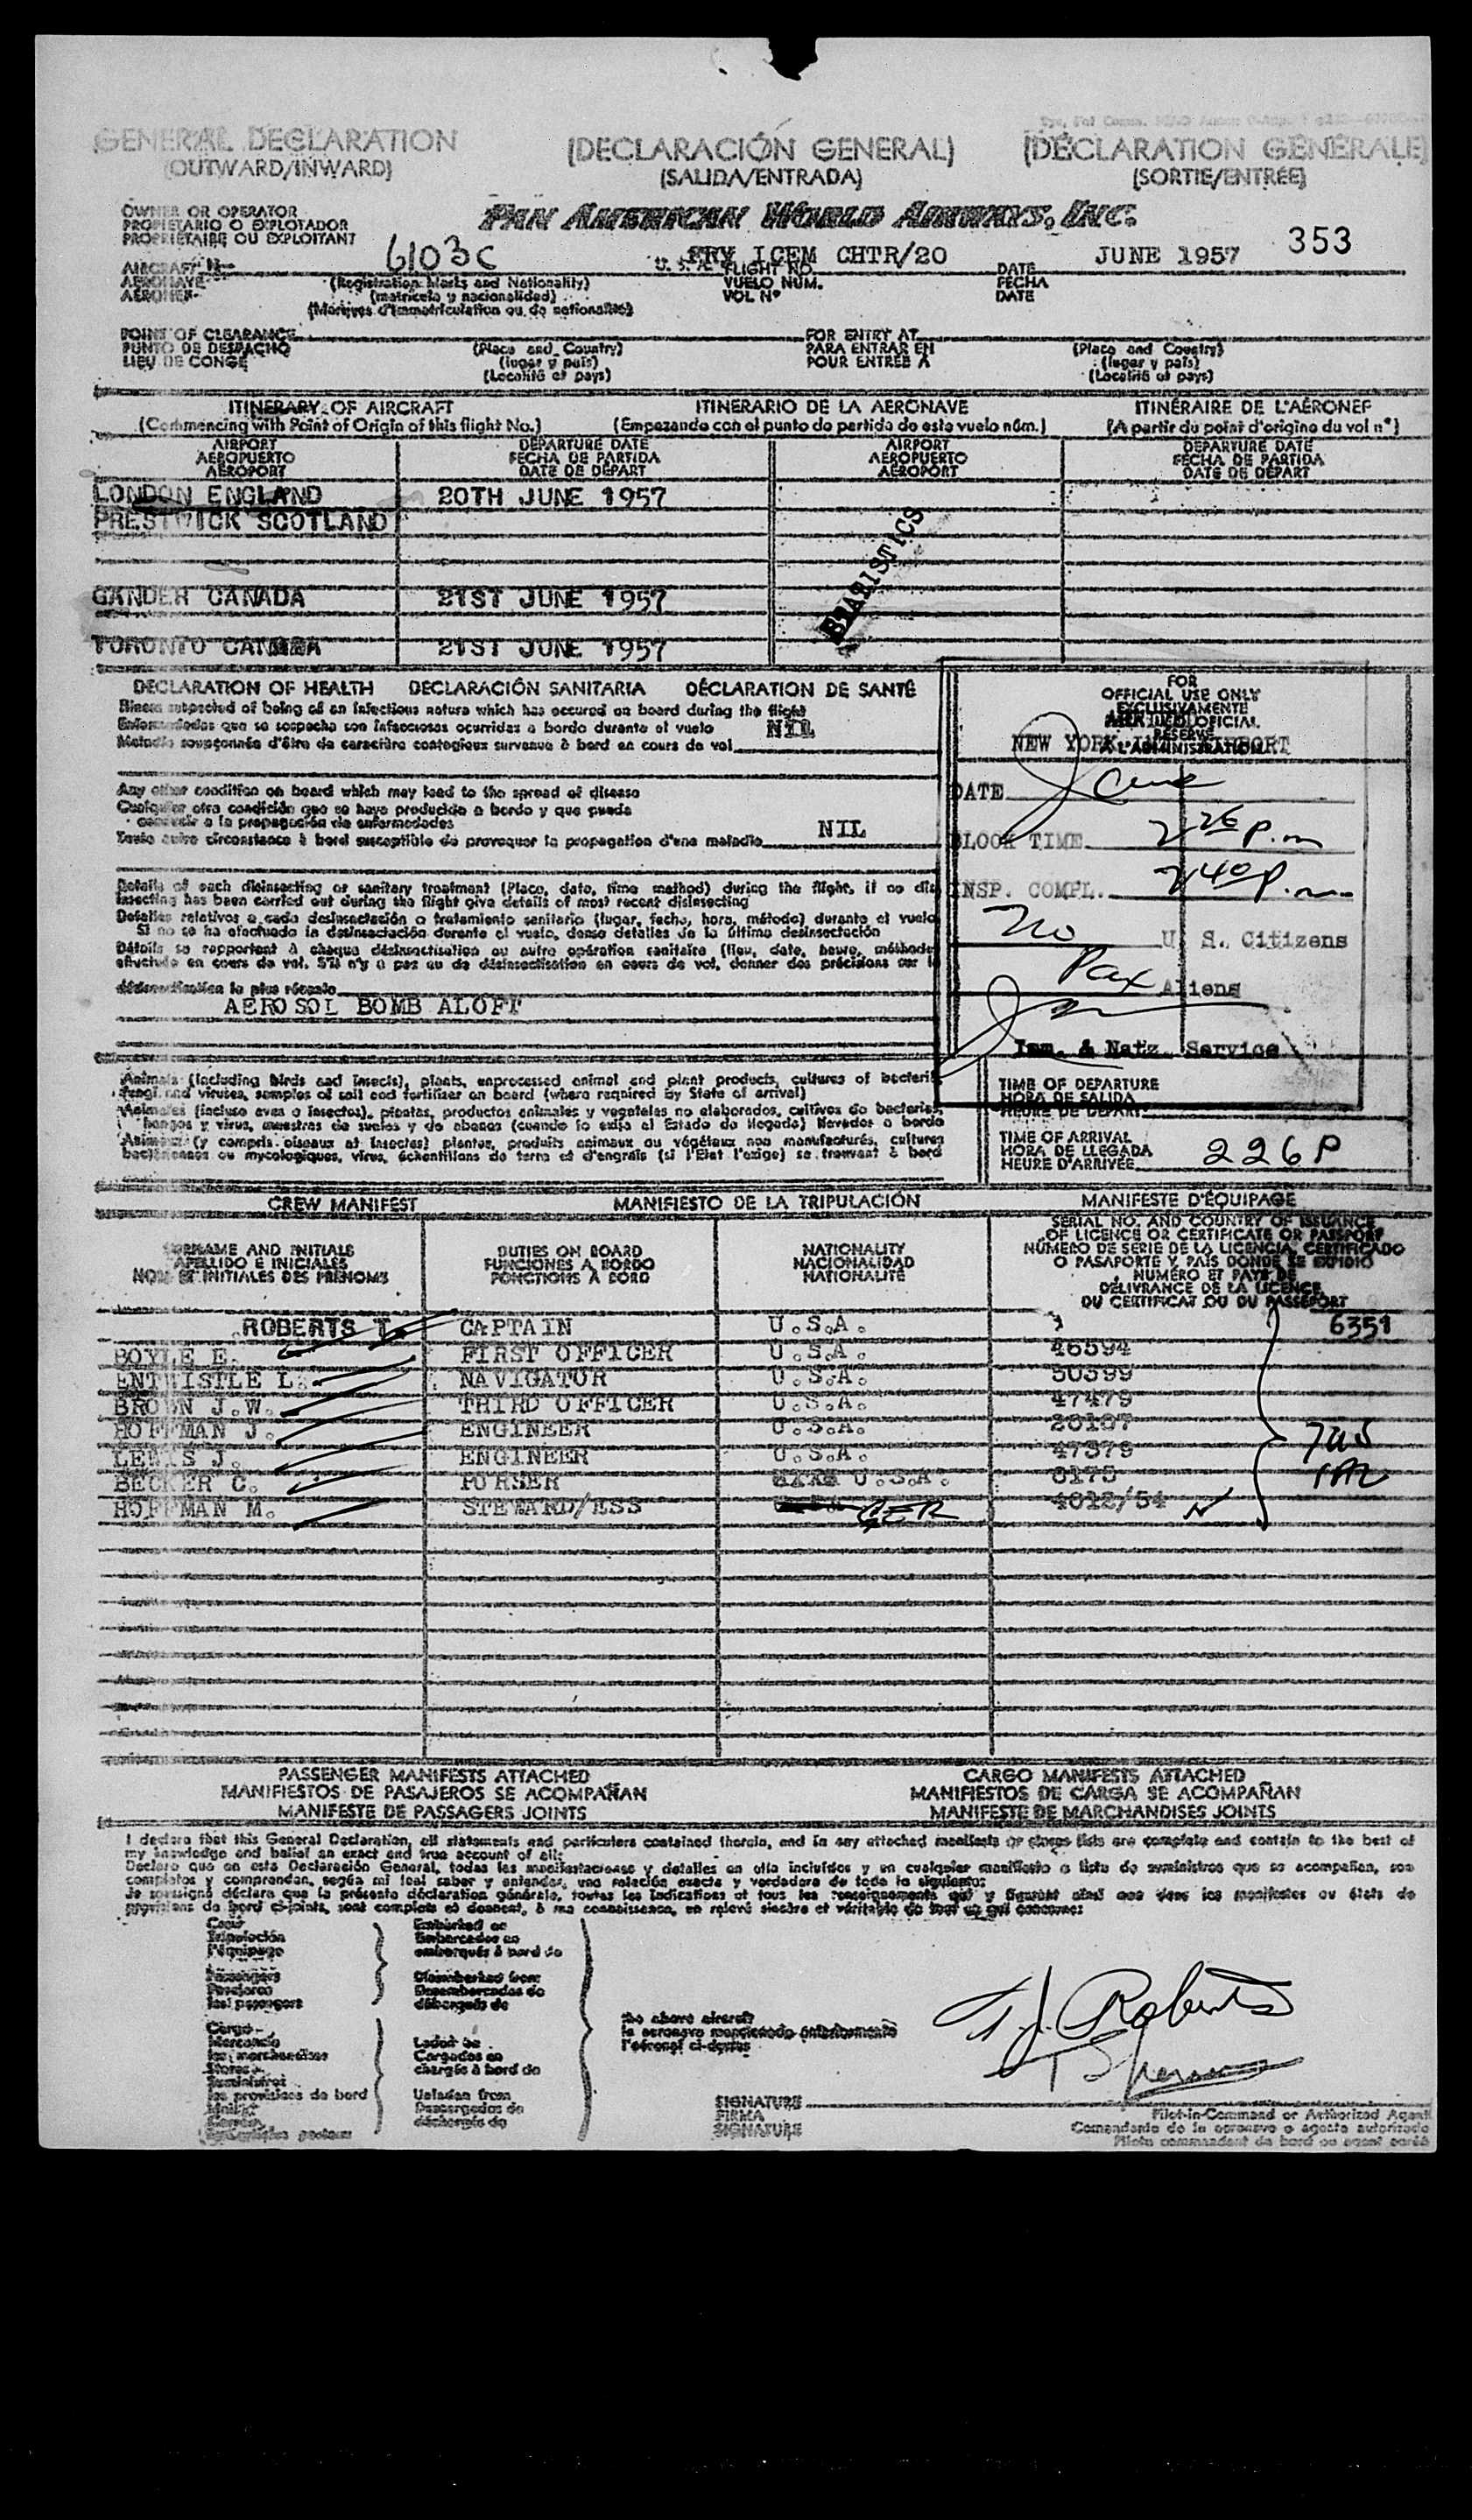 GENERAL DECLARATION
(OUTWARD/INWARD)
(DECLARACIÓN GENERAL)
(SALIDA/ENTRADA)
(DÉCLARATION GÉNÉRALE)
(SORTIE/ENTRÉE)
OWNER OR OPERATOR
PROPIETARIO O EXPLOTADOR
PROPRIÉTAIRE OU EXPLOITANT
PAN AMERICAN WORLD AIRWAYS, INC.
353
6103C
U.S.A. FLIGHT NO. ICEM CHTR/20
DATE JUNE 1957
(Registration Marks and Nationality)
VUELO NUM.
FECHA
(matrícula y nacionalidad)
VOL Nº
DATE
(Marques d'immatriculation ou de nationalité)
POINT OF CLEARANCE
PUNTO DE DESPACHO
LIEU DE CONGÉ
(Place and Country)
(lugar y país)
(Localité et pays)
FOR ENTRY AT
PARA ENTRAR EN
POUR ENTRÉE A
(Place and Country)
(lugar y país)
(Localité et pays)
ITINERARY OF AIRCRAFT ITINERARIO DE LA AERONAVE ITINÉRAIRE DE L'AÉRONEF
(Commencing with Point of Origin of this flight No.) (Empezando con el punto de partida de este vuelo núm.) (A partir du point d'origine du vol nº)
AIRPORT DEPARTURE DATE AIRPORT DEPARTURE DATE
AEROPUERTO FECHA DE PARTIDA AEROPUERTO FECHA DE PARTIDA
AÉROPORT DATE DE DÉPART AÉROPORT DATE DE DÉPART
LONDON ENGLAND 20TH JUNE 1957
PRESTWICK SCOTLAND
GANDER CANADA 21ST JUNE 1957
TORONTO CANADA 21ST JUNE 1957
DECLARATION OF HEALTH DECLARACIÓN SANITARIA DÉCLARATION DE SANTÉ
Illness suspected of being of an infectious nature which has occured on board during the flight
Enfermedades que se sospecha son infecciosas ocurridas a bordo durante el vuelo NIL
Maladie soupçonnée d'être de caractère contagieux survenue à bord en cours de vol
Any other condition on board which may lead to the spread of disease
Cualquier otra condición que se haya producido a bordo y que pueda
conducir a la propagación de enfermedades
Toute autre circonstance à bord susceptible de provoquer la propagation d'une maladie NIL
Details of each disinsecting or sanitary treatment (Place, date, time method) during the flight, if no dis
insecting has been carried out during the flight give details of most recent disinsecting
Detalles relativos a cada desinsectación o tratamiento sanitario (lugar, fecha, hora, método) durante el vuelo
Si no se ha efectuado la desinsectación durante el vuelo, dense detalles de la última desinsectación
Détails se rapportant à chaque désinsectisation ou autre opération sanitaire (lieu, date, heure, méthode
effectuée en cours de vol. S'il n'y a pas eu de désinsectisation en cours de vol, donner des précisions sur l
désinsectisation la plus récente
AEROSOL BOMB ALOFT
FOR
OFFICIAL USE ONLY
EXCLUSIVAMENTE
RÉSERVÉ
A L'ADMINISTRATION
NEW YORK
DATE June
BLOCK TIME 2 26 p.m
INSP. COMPL. 2 40 p.m.
No U. S. Citizens
Pax Aliens
Imm. & Natz. Service
Animals (including birds and insects), plants, unprocessed animal and plant products, cultures of bacteria
fungi and viruses, samples of soil and fertilizer on board (where required by State of arrival)
Animales (incluso aves o insectos), plantas, productos animales y vegetales no elaborados, cultivos de bacterias,
hongos y virus, muestras de suelos y de abonos (cuando lo exija el Estado de llegada) llevados a bordo
Animaux (y compris oiseaux et insectes) plantes, produits animaux ou végétaux non manufacturés, cultures
bactériennes ou mycologiques, virus, échantillons de terre et d'engrais (si l'Etat l'exige) se trouvant à bord
TIME OF DEPARTURE
HORA DE SALIDA
HEURE DE DÉPART
TIME OF ARRIVAL
HORA DE LLEGADA
HEURE D'ARRIVÉE 226 P
CREW MANIFEST MANIFIESTO DE LA TRIPULACIÓN MANIFESTE D'ÉQUIPAGE
SURNAME AND INITIALS
APELLIDO E INICIALES
NOM ET INITIALES DES PRÉNOMS
DUTIES ON BOARD
FUNCIONES A BORDO
FONCTIONS A BORD
NATIONALITY
NACIONALIDAD
NATIONALITÉ
SERIAL NO. AND COUNTRY OF ISSUANCE
OF LICENCE OR CERTIFICATE OR PASSPORT
NÚMERO DE SERIE DE LA LICENCIA, CERTIFICADO
O PASAPORTE Y PAÍS DONDE SE EXPIDIÓ
NUMÉRO ET PAYS DE
DÉLIVRANCE DE LA LICENCE,
DU CERTIFICAT OU DU PASSEPORT
ROBERTS T. CAPTAIN U.S.A. 6351
BOYLE E. FIRST OFFICER U.S.A. 46594
ENTWISTLE L. NAVIGATOR U.S.A. 50599
BROWN J.W. THIRD OFFICER U.S.A. 47479
HOFFMAN J. ENGINEER U.S.A. 20107
LEWIS J. ENGINEER U.S.A. 47379
BECKER C. PURSER U.S.A. 6175
HOFFMAN M. STEWARD/ESS GER 4012/54
PASSENGER MANIFESTS ATTACHED
MANIFIESTOS DE PASAJEROS SE ACOMPAÑAN
MANIFESTE DE PASSAGERS JOINTS
CARGO MANIFESTS ATTACHED
MANIFIESTOS DE CARGA SE ACOMPAÑAN
MANIFESTE DE MARCHANDISES JOINTS
I declare that this General Declaration, all statements and particulars contained therein, and in any attached manifests or stores lists are complete and contain to the best of
my knowledge and belief an exact and true account of all:
Declaro que en esta Declaración General, todas las manifestaciones y detalles en ella incluídos y en cualquier manifiesto o lista de suministros que se acompañen, son
completos y comprenden, según mi leal saber y entender, una relación exacta y verdadera de toda lo siguiente:
Je soussigné déclare que la présente déclaration générale, toutes les indications et tous les renseignements qui y figurent ainsi que dans les manifestes ou états de
provisions de bord ci-joints, sont complets et donnent, à ma connaissance, un relevé sincère et véritable de tout ce qui concerne:
Crew
Tripulación
l'équipage
Embarked on
Embarcados en
embarqués à bord de
Passengers
Pasajeros
les passagers
Disembarked from
Desembarcados de
débarqués de
Cargo
Mercancía
les marchandises
Stores
Suministros
les provisions de bord
Laden on
Cargados en
chargés à bord de
Unladen from
Descargados de
déchargés de
the above aircraft
la aeronave mencionada anteriormente
l'aéronef ci-dessus
T. J. Roberts
SIGNATURE
FIRMA
SIGNATURE
Pilot-in-Command or Authorized Agent
Comandante de la aeronave o agente autorizado
Pilote commandant de bord ou agent agréé